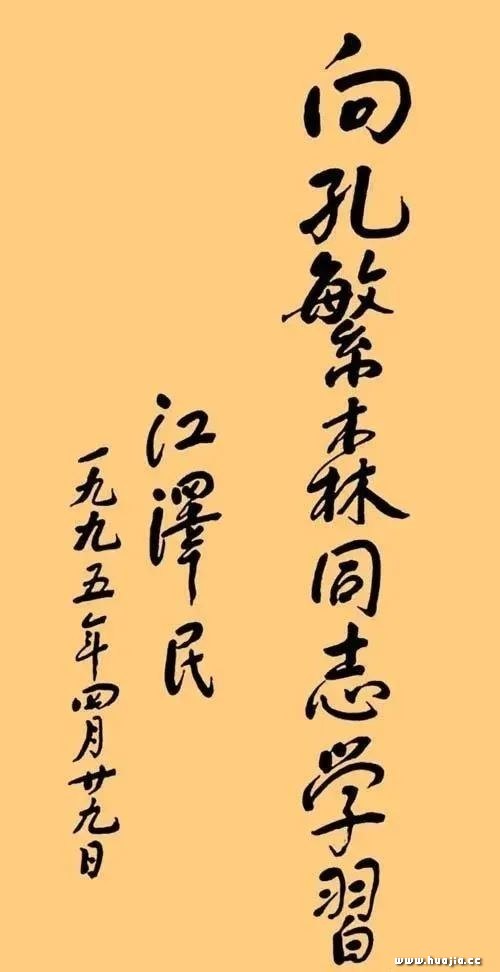 向孔繁森同志学習
江澤民
一九九五年四月廿九日
www.huajia.cc